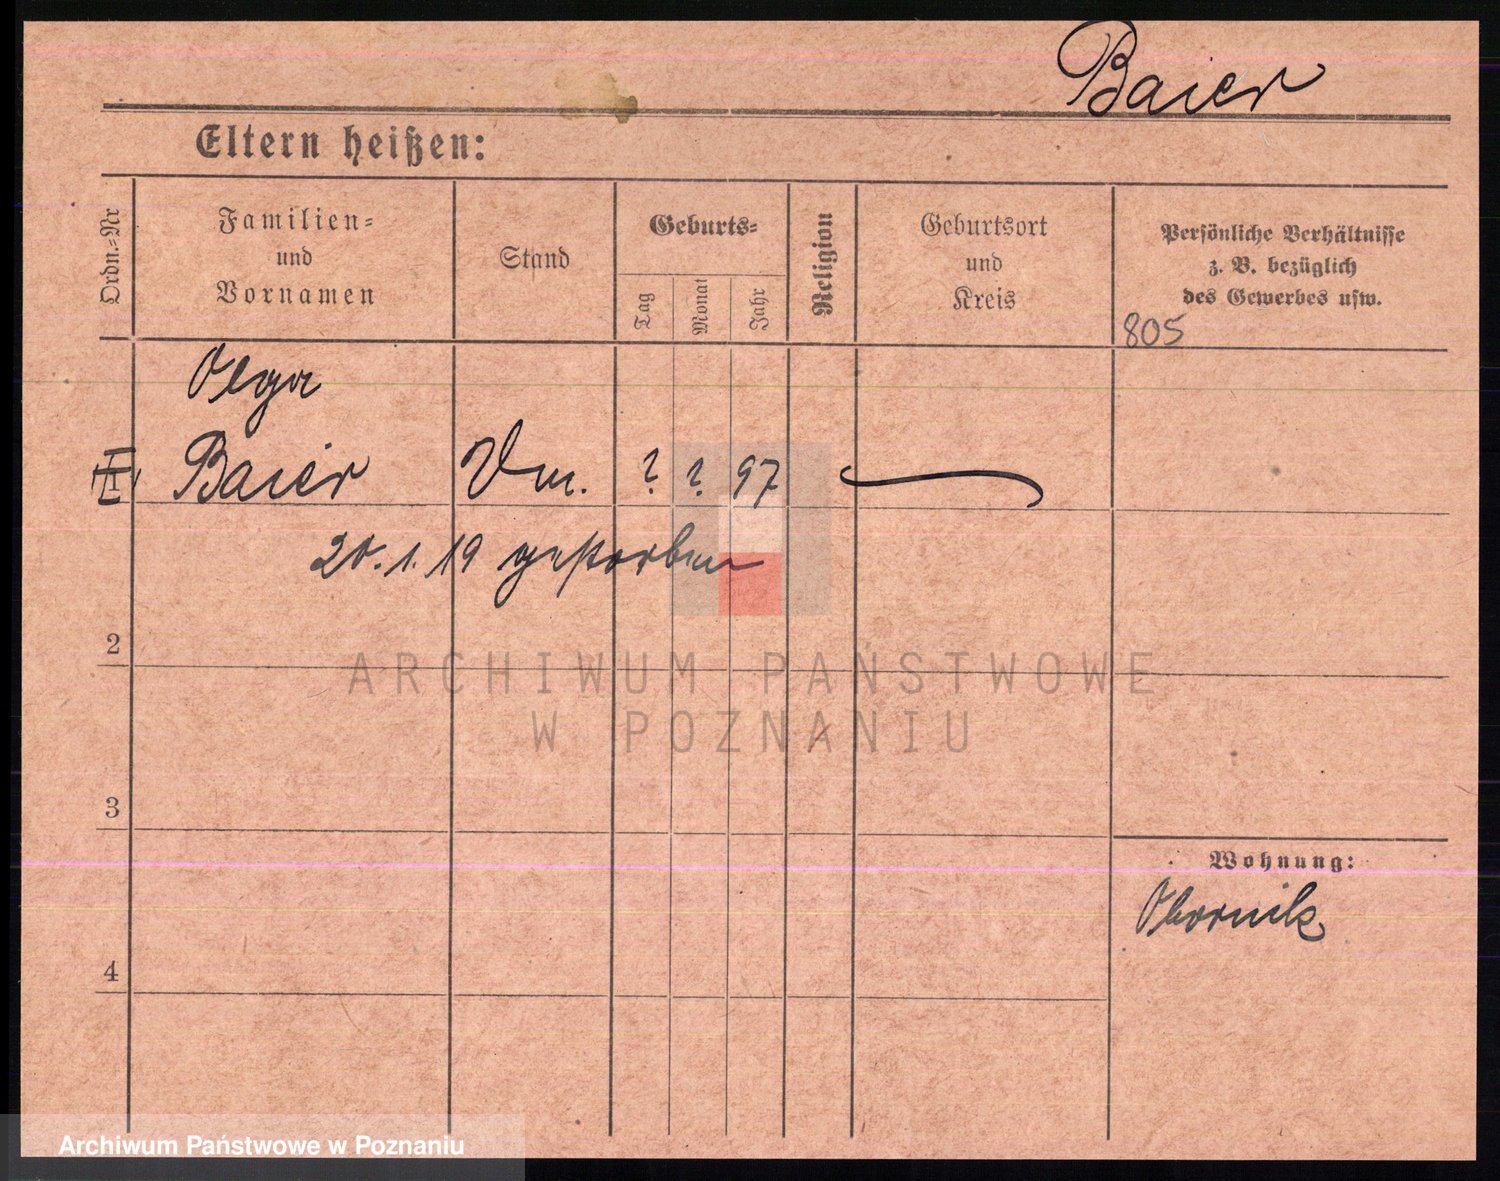 Baier
Eltern heißen:
Ordn=Nr
Familien=
und
Vornamen
Stand
Geburts=
Tag
Monat
Jahr
Religion
Geburtsort
und
Kreis
Persönliche Verhältnisse
z. B. bezüglich
des Gewerbes usw.
805
Olga
Baier ? ? 97
20.1.19 gestorben
2
ARCHIWUM PAŃSTWOWE
W POZNANIU
3
Wohnung:
Obornik
4
Archiwum Państwowe w Poznaniu